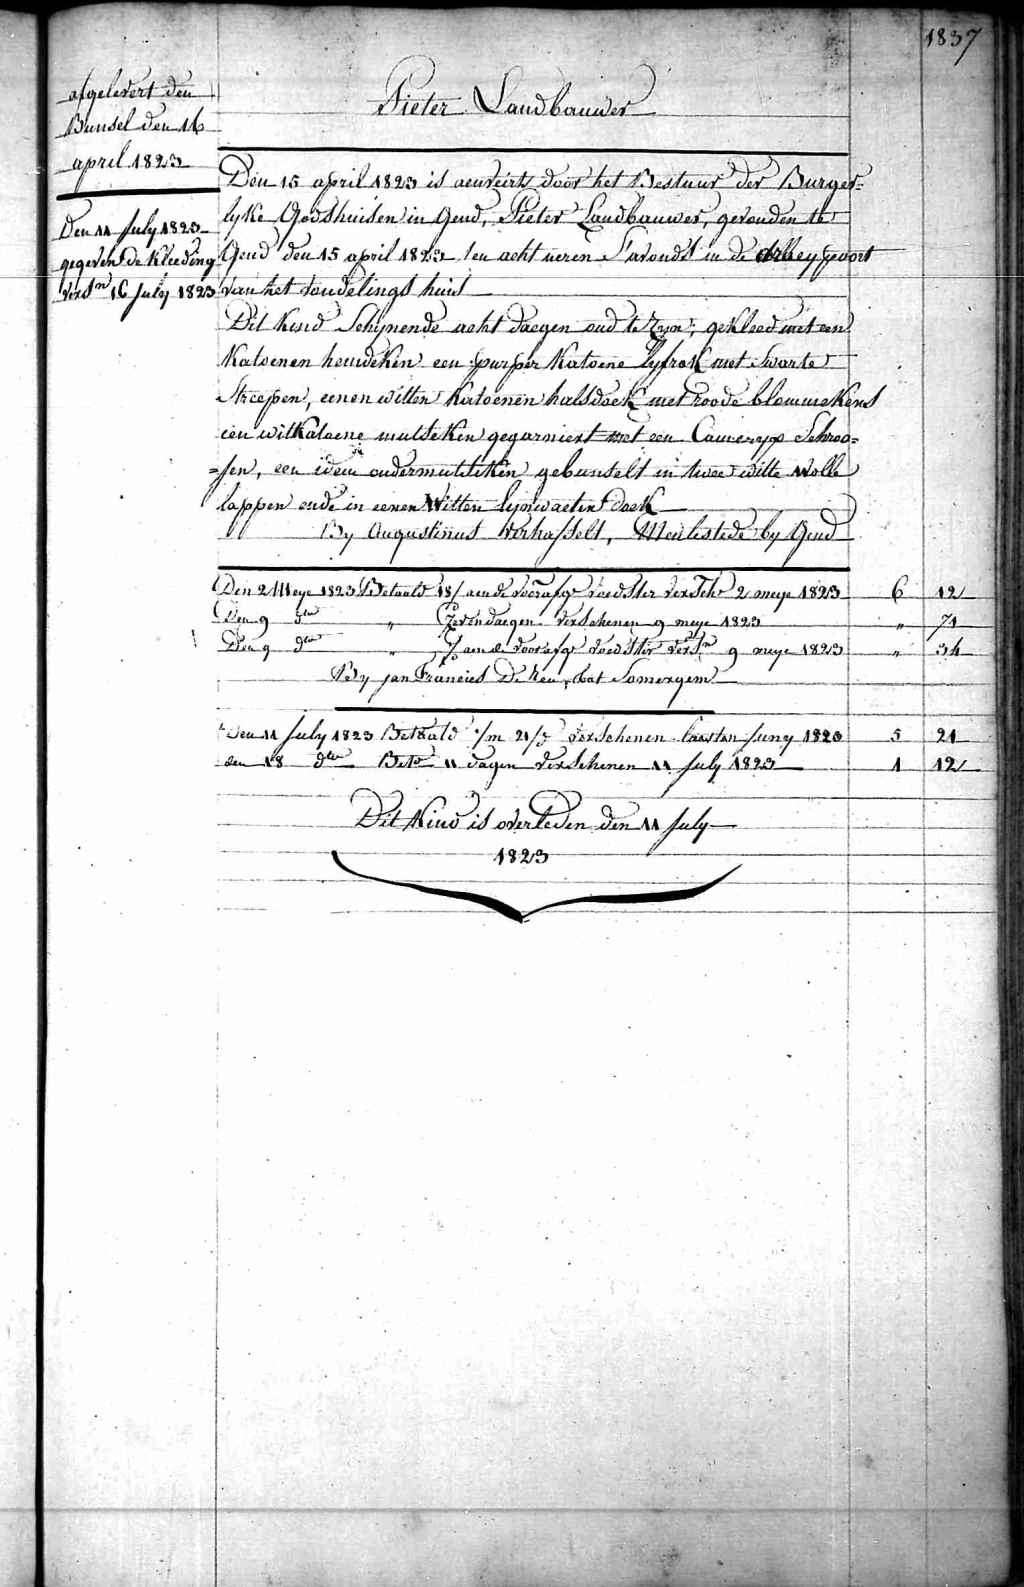 1837
afgelevert den
Bunsel den 16
april 1823
Den 11 July 1823
gegeven de Kleeding
versn 16 July 1823
Pieter Landbauwer
Den 15 april 1823 is aenveirt door het Bestuur der Burger=
lyke Godshuisen in Gend, Pieter Landbauwer, gevonden te
Gend den 15 april 1823 ten acht ueren S'avonds in de
van het vondelings huis
Dit Kind Schynende acht daegen oud te zyn, gekleed met een
Katoenen heuveken een purper Katoene lyfrok met Swarte
Streepen, eenen witten Katoenen halsdoek met roode blommekens
een wit katoene mutseken gegarniert met een Cameryx Schroo=
=sen, een idem ondermutseken gebunselt in twee witte wolle
lappen ende in eenen Witten lynwaeten doek
By Augustinus Verhasselt, Meulestede by Gend
Den 2 Meye 1823 Betaald 18/ aen de voorafge voedster versch 2 meye 1823 6 12
Den 9 dto " Zeven daegen verschenen 9 meye 1823 " 71
Den 9 dto " aen de voorafge voedster versn 9 meye 1823 " 34
By jan Francies De Reu, bat Somergem
Den 11 July 1823 Betaald /m 21/5 verschenen laesten Juny 1823 5 21
den 18 dto Bete 11 dagen verschenen 11 July 1823 1 12
Dit Kind is overleden den 11 July
1823